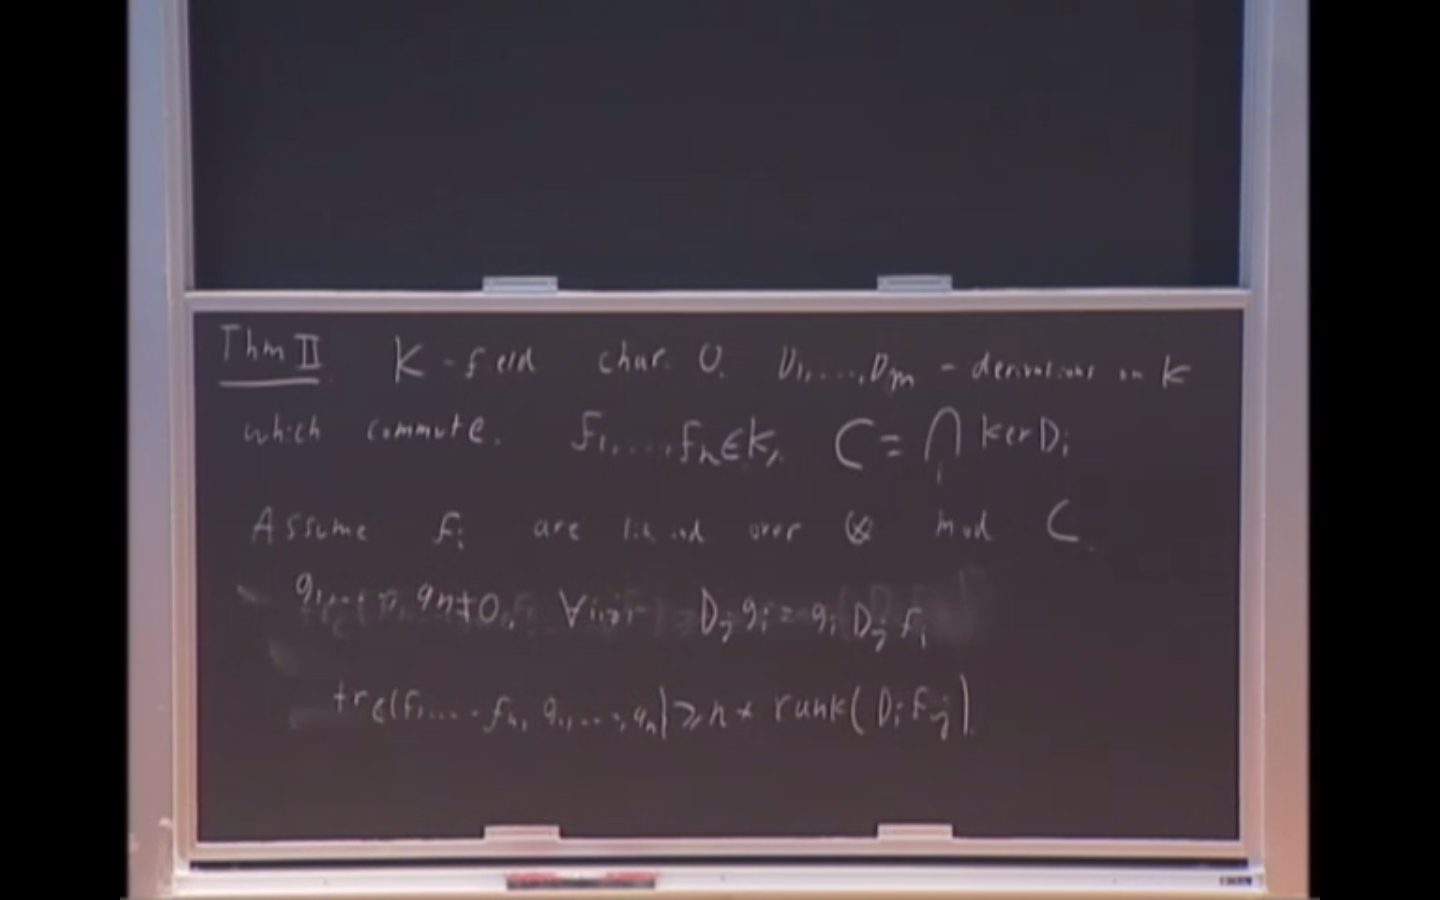 Thm II K - field char. 0. D₁,....,Dₘ - derivations on K
which commute. f₁,....,fₙ∈K, C = ⋂ᵢ ker Dᵢ
Assume fᵢ are lin ind over ℚ mod C.
g₁,..., gₙ≠0, ∀i,j, Dⱼ gᵢ = gᵢ Dⱼ fᵢ
tr_C(f₁,....fₙ, g₁,...,gₙ) ⩾ n + rank( Dᵢ fⱼ ).